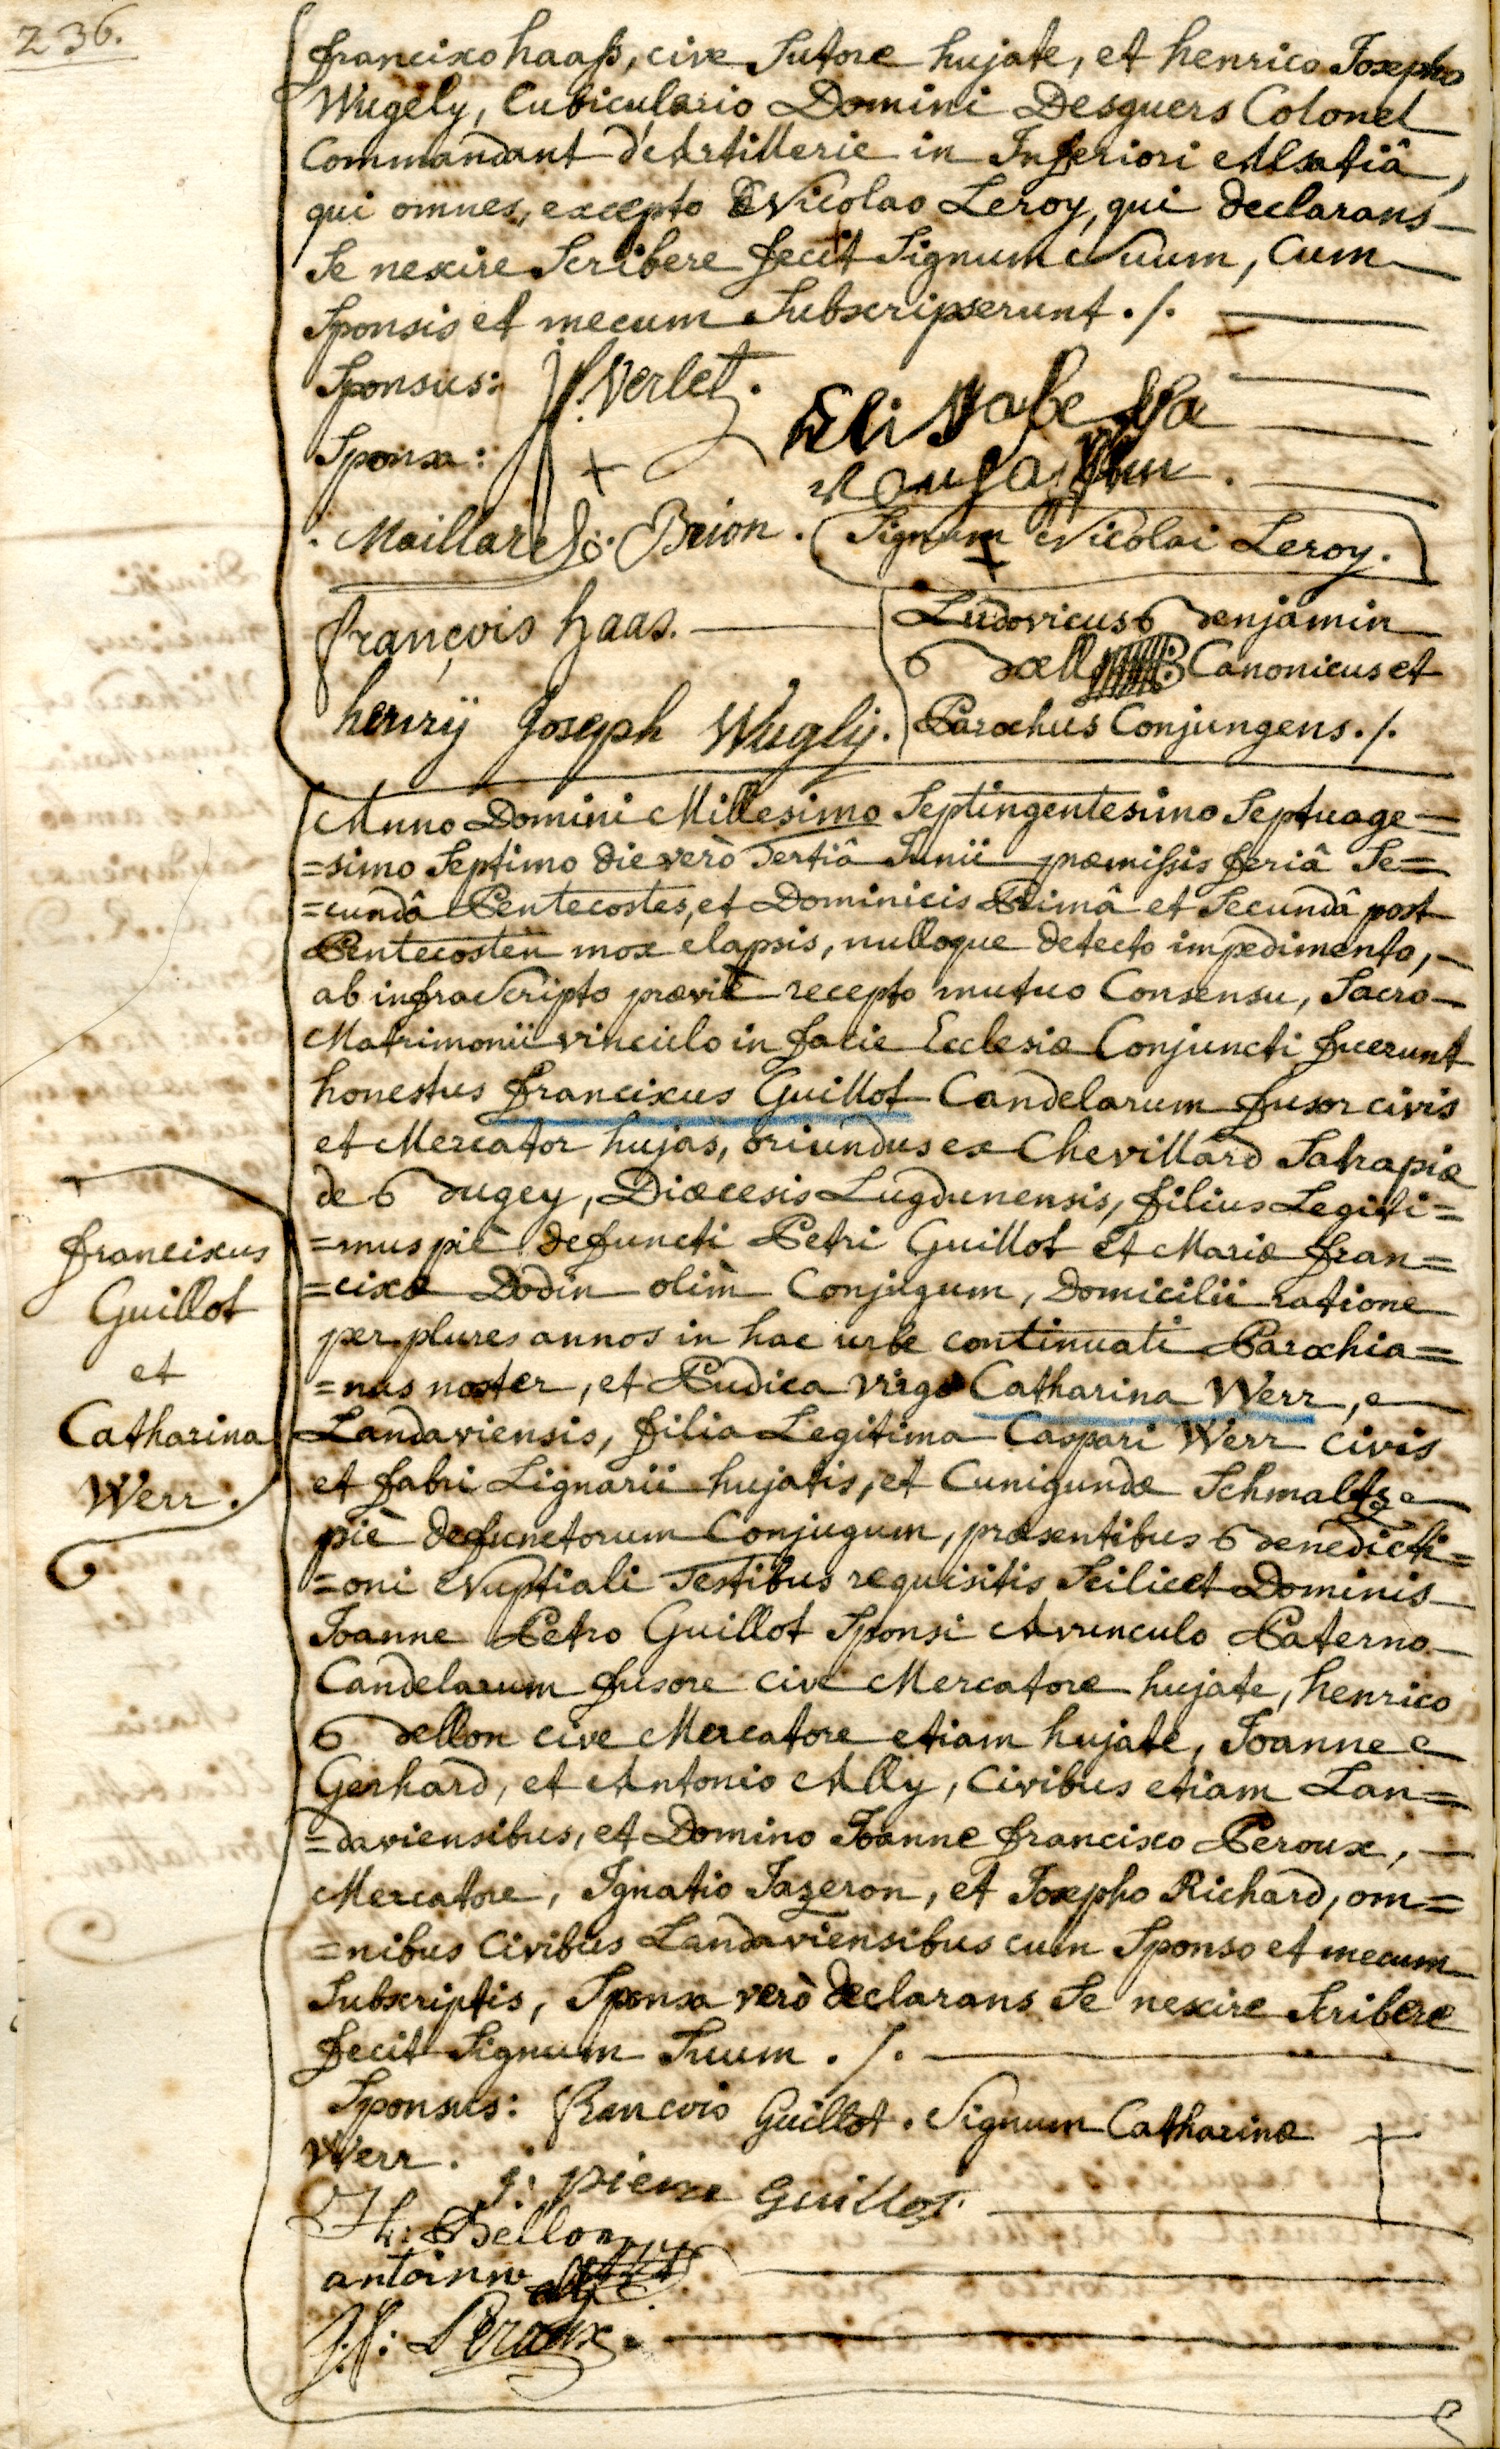 236.
francisco haaß, cive Sutore hujate, et henrico Josepho
Wugely, Cubiculario Domini Desguers Colonel
Commandant d'Artillerie in Inferiori Alsatiâ,
qui omnes, excepto Nicolao Leroy, qui declarans
Se nescire Scribere fecit Signum Suum, Cum
Sponsis et mecum Subscripserunt ./.
Sponsus: Verlet.
Sponsa: + Elisabetha
Maillard Brion. Signum Nicolai Leroy.
+
françois haas.
Ludovicus Benjamin
Canonicus et
henrÿ Joseph Wuglÿ.
Parochus Conjungens ./.
Anno Domini Millesimo Septingentesimo Septuage=
=simo Septimo die verò Tertiâ Junii præmissis feriâ Se=
=cundâ Pentecostes, et Dominicis Primâ et Secundâ post
Pentecosten mox elapsis, nulloque detecto impedimento,
ab infraScripto præviè recepto mutuo Consensu, Sacro
Matrimonii vinculo in facie Ecclesiæ Conjuncti fuerunt
honestus franciscus Guillot Candelarum fusor civis
et Mercator hujas, oriundus ex Chevillard Satrapiæ
de Bugey, Diœcesis Lugdunensis, filius Legiti=
=mus piè defuncti Petri Guillot et Mariæ fran=
=ciscæ Dodin olim Conjugum, Domicilii ratione
per plures annos in hac urbe continuati Parochia=
=nus noster, et Pudica virgo Catharina Werr,
Landaviensis, filia Legitima Caspari Werr civis
et fabri Lignarii hujatis, et Cunigundæ Schmaltz
piè defunctorum Conjugum, præsentibus Benedicti=
=oni Nuptiali Testibus requisitis Scilicet Dominis
Joanne Petro Guillot Sponsi Avunculo Paterno
Candelarum fusore cive Mercatore hujate, henrico
Bellon cive Mercatore etiam hujate, Joanne
Gerhard, et Antonio Ally, Civibus etiam Lan=
=daviensibus, et Domino Joanne francisco Peroux,
Mercatore, Ignatio Jazeron, et Josepho Richard, om=
=nibus Civibus Landaviensibus cum Sponso et mecum
Subscriptis, Sponsa verò declarans Se nescire Scribere
fecit Signum Suum ./.
franciscus
Guillot
et
Catharina
Werr.
Sponsus: francois Guillot. Signum Catharinæ +
Werr. j: pierre Guillot.
H: Bellon
antoinne
J.f: Peroux.